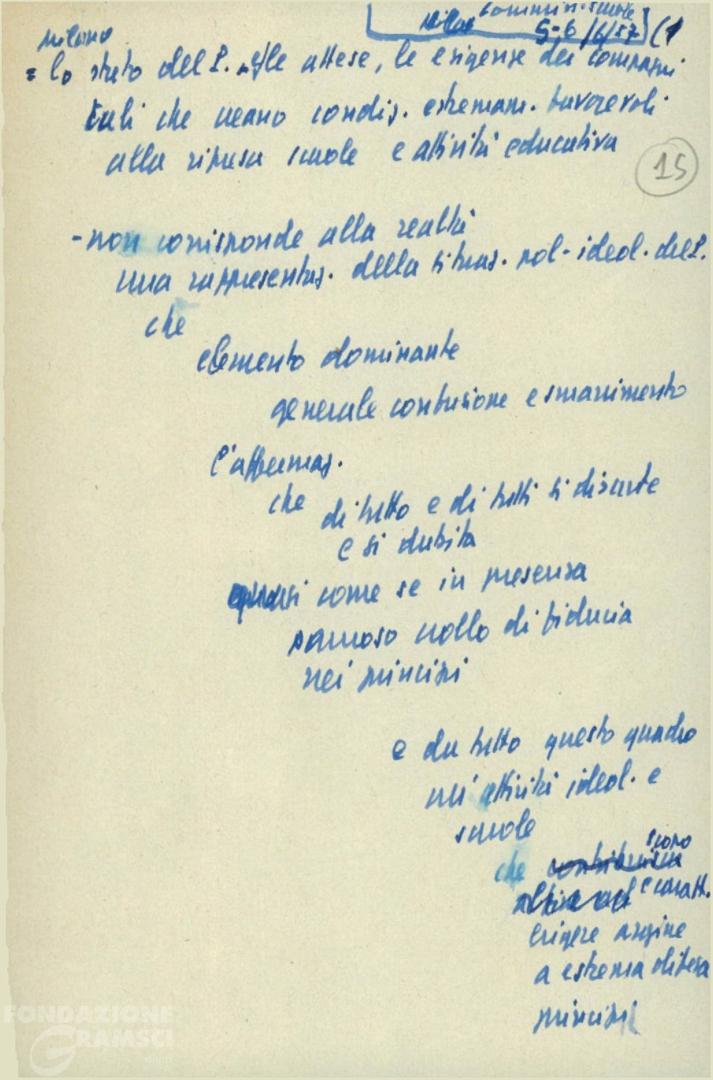 Commiss. scuole
Milano 5-6/6/57 (1
Milano
= lo stato del P. e le attese, le esigenze dei compagni
tali che creano condiz. estremam. favorevoli
alla ripresa scuole e attività educativa
15
- non corrisponde alla realtà
una rappresentaz. della situaz. pol-ideol. del P.
che
elemento dominante
generale confusione e smarrimento
l'affermaz.
che di tutto e di tutti si discute
e si dubita
quasi come se in presenza
pauroso crollo di fiducia
nei principi
e da tutto questo quadro
un'attività ideol. e
scuole
che scopo
e caratt.
erigere argine
a estrema difesa
principi
FONDAZIONE
GRAMSCI